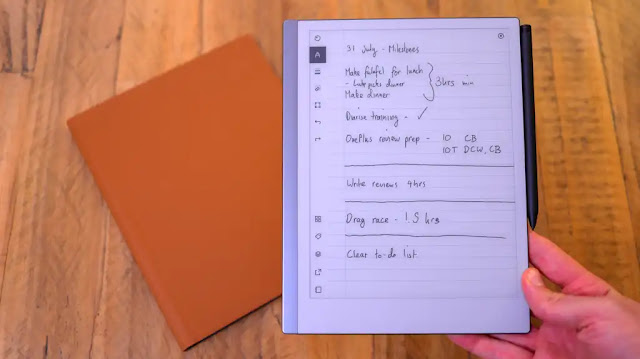 31 July - Milestones
Make falafel for lunch
- dinner
Make dinner
3hrs min
training - ✓
OnePlus review prep - 10 CB
10T DCW, CB
Write reviews 4hrs
Drag race - 1.5 hrs
Clear to-do list